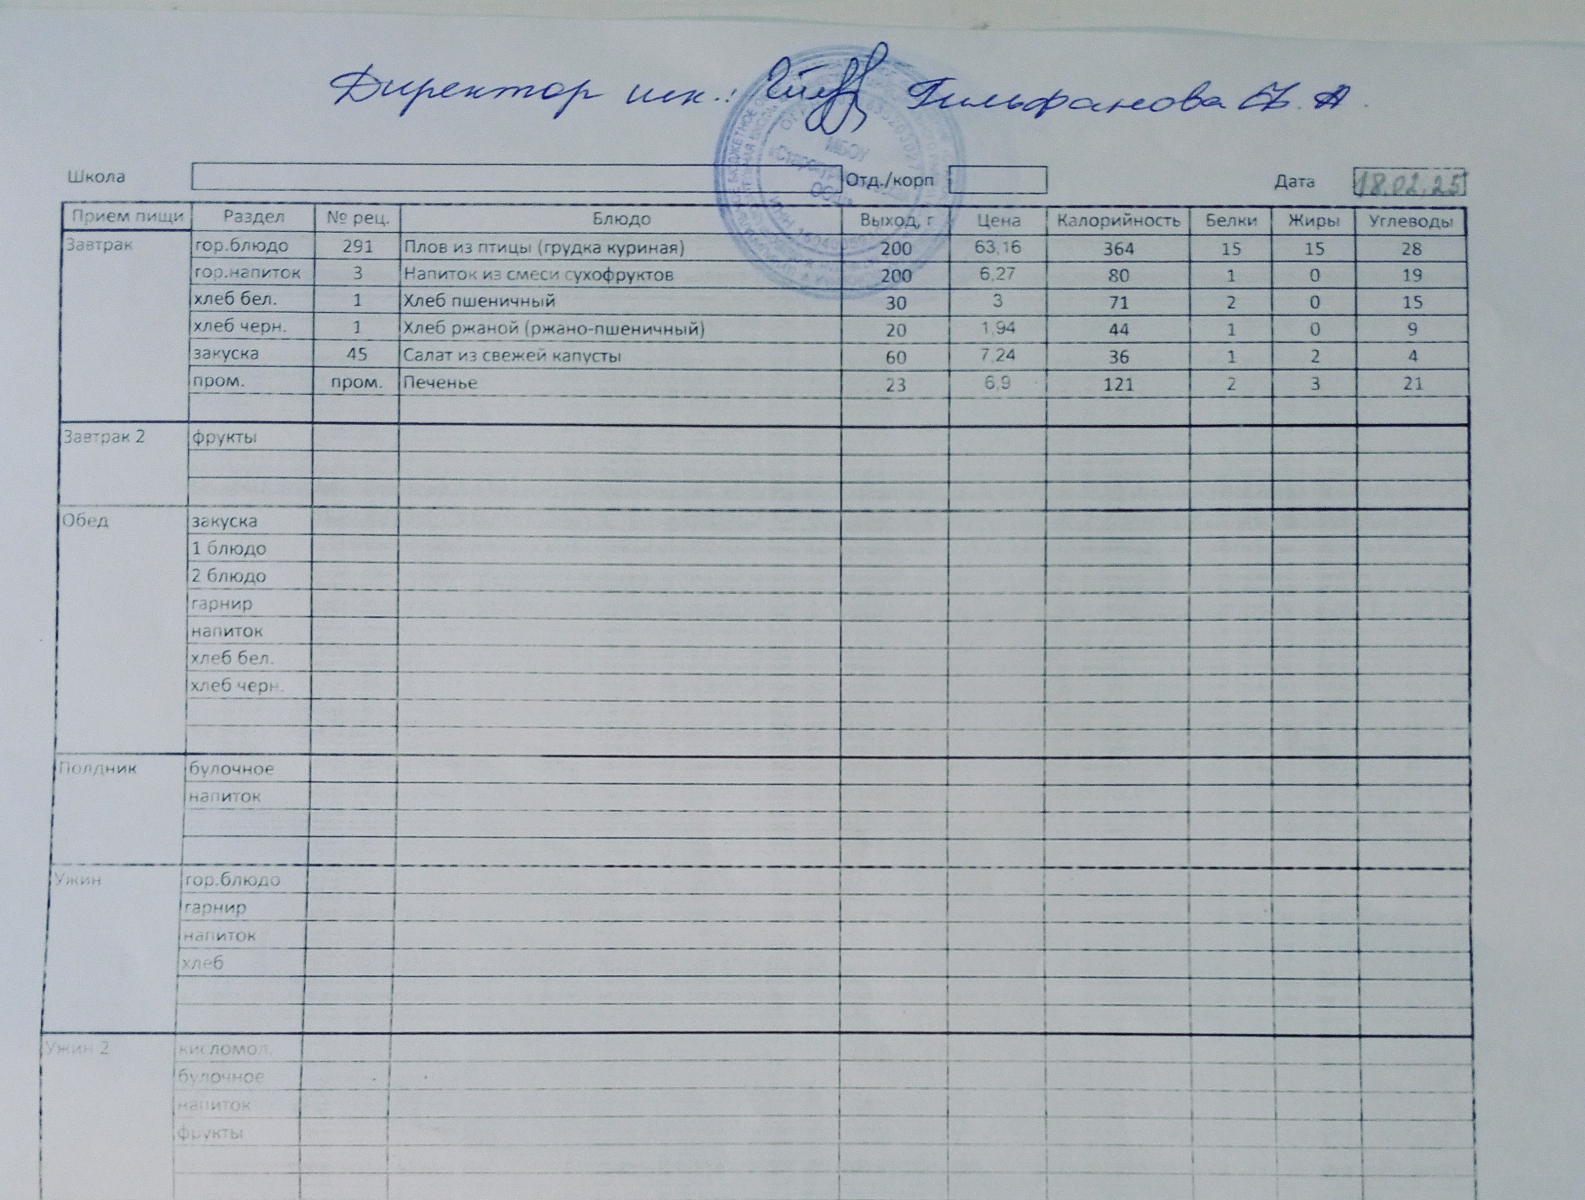 Директор шк.: Гильфанова
Школа Отд./корп Дата 18.02.25
Прием пищи Раздел № рец. Блюдо Выход, г Цена Калорийность Белки Жиры Углеводы
Завтрак гор.блюдо 291 Плов из птицы (грудка куриная) 200 63,16 364 15 15 28
гор.напиток 3 Напиток из смеси сухофруктов 200 6,27 80 1 0 19
хлеб бел. 1 Хлеб пшеничный 30 3 71 2 0 15
хлеб черн. 1 Хлеб ржаной (ржано-пшеничный) 20 1,94 44 1 0 9
закуска 45 Салат из свежей капусты 60 7,24 36 1 2 4
пром. пром. Печенье 23 6,9 121 2 3 21
Завтрак 2 фрукты
Обед закуска
1 блюдо
2 блюдо
гарнир
напиток
хлеб бел.
хлеб черн.
Полдник булочное
напиток
Ужин гор.блюдо
гарнир
напиток
хлеб
Ужин 2 кисломол.
булочное
напиток
фрукты
МБОУ